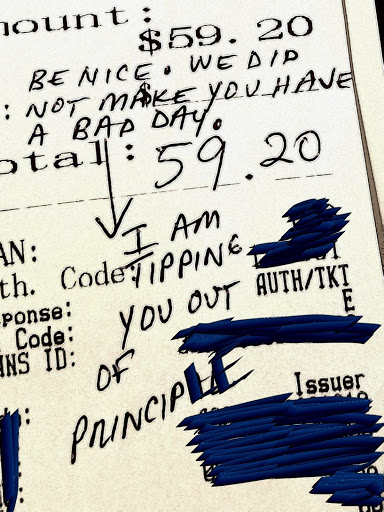 ount:
$59.20
BE NICE. WE DID
: NOT MAKE YOU HAVE
$
A BAD DAY.
otal: 59.20
AN: I AM
th. Code: TIPPING
AUTH/TKT
ponse: YOU OUT E
Code:
NS ID: OF
Issuer
PRINCIP